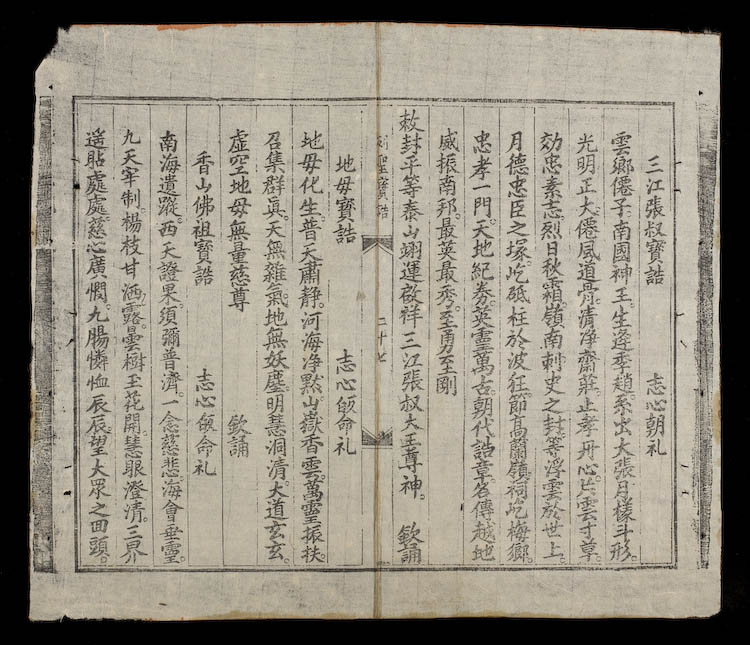 三江張叔寶誥 志心朝礼
雲鄉僊子南國神王生逢季趙系出大張月樣斗形
光明正大僊風道骨清净齋莊止孝丹心片雲寸草
効忠素志烈日秋霜嶺南刺史之封等浮雲於世上
月德忠臣之塚屹砥柱於波狂節高蘭嶺祠屹梅鄉
忠孝一門天地紀券英靈萬古朝代誥章名傳越地
威振南邦最英最秀至勇至剛
敕封平等泰山翊運啟祥三江張叔大王尊神 欽誦
列聖寶誥 二十七
地母寶誥 志心皈命礼
地母化生普天肅静河海净默山嶽香雲萬靈振扶
召集群真天無雜氣地無妖塵明慧洞清大道玄玄
虛空地母無量慈尊 欽誦
香山佛祖寶誥 志心皈命礼
南海遺蹤西天證果須彌普濟一念慈悲海會垂靈
九天宰制楊枝甘洒露曇樹玉花開慧眼澄清三界
遥貼處處慈心廣憫九腸憐恤辰辰望大眾之回頭